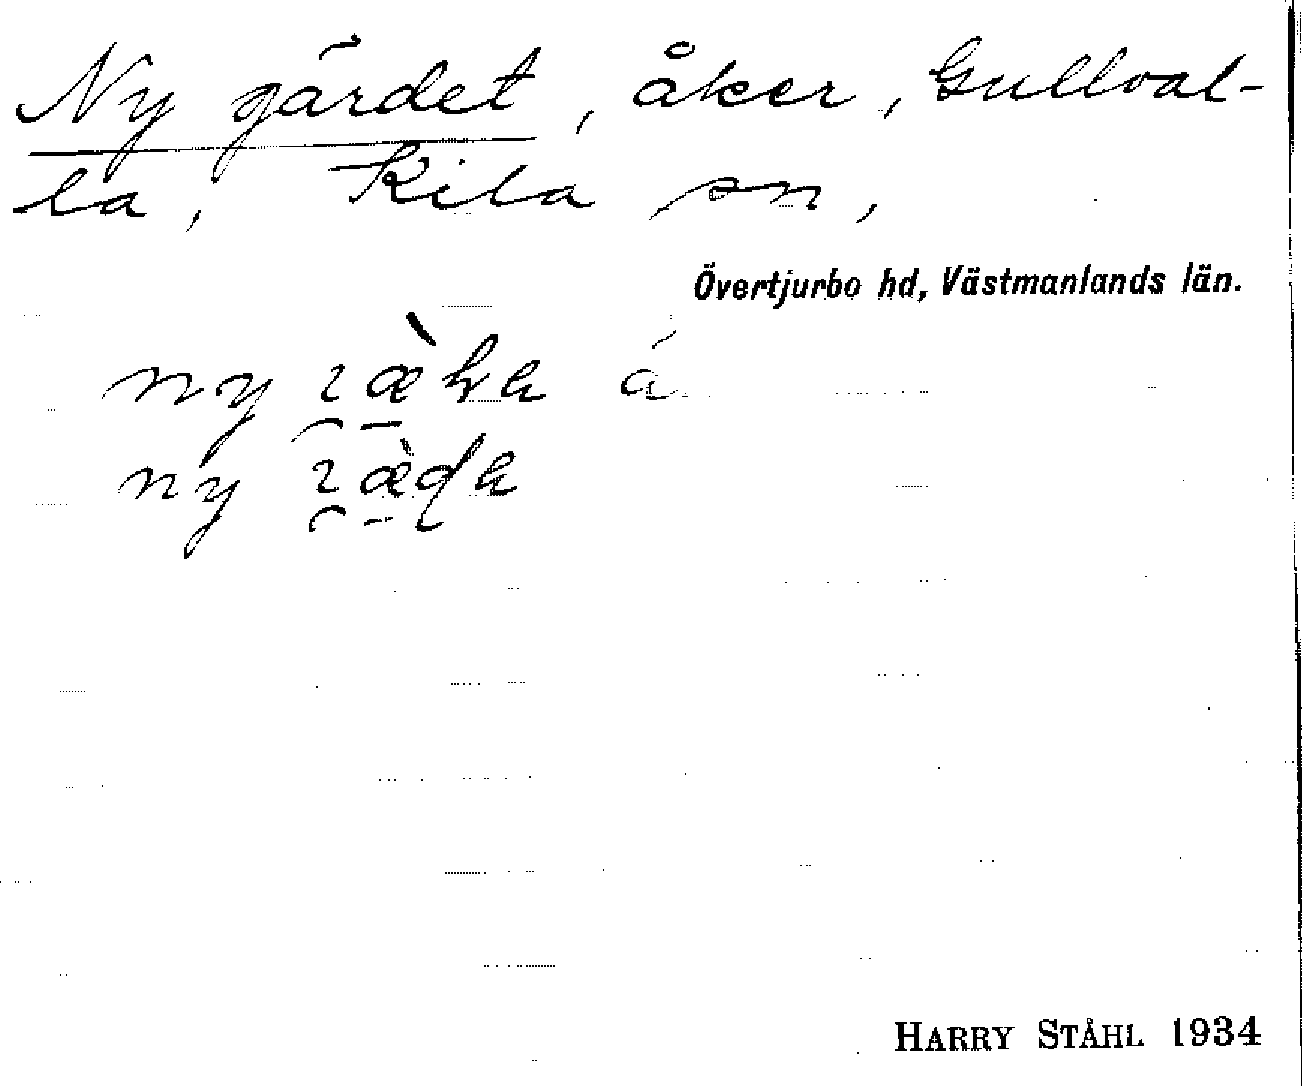 Ny gärdet, åker, Gullval-
la, Kila sn,
Övertjurbo hd, Västmanlands län.
ny
ny
HARRY STÅHL 1934